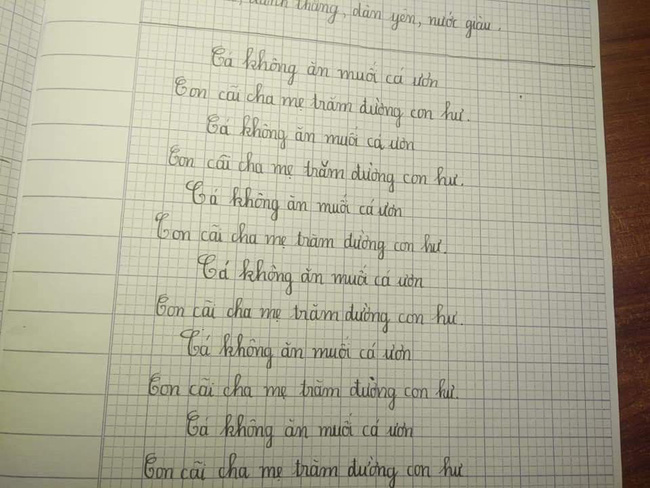 đánh thắng, dám yên, nước giàu.
Cá không ăn muối cá ươn
Con cãi cha mẹ trăm đường con hư.
Cá không ăn muối cá ươn
Con cãi cha mẹ trăm đường con hư.
Cá không ăn muối cá ươn
Con cãi cha mẹ trăm đường con hư.
Cá không ăn muối cá ươn
Con cãi cha mẹ trăm đường con hư.
Cá không ăn muối cá ươn
Con cãi cha mẹ trăm đường con hư.
Cá không ăn muối cá ươn
Con cãi cha mẹ trăm đường con hư